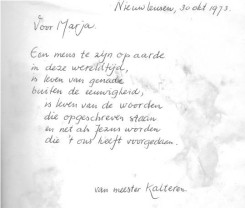 Nieuwleusen, 30 okt 1973.
Voor Marja.
Een mens te zijn op aarde
in deze wereldtijd,
is leven van genade
buiten de eeuwigheid,
is leven van de woorden
die opgeschreven staan
en net als Jezus worden
die 't ons heeft voorgedaan.
van meester Kalteren.